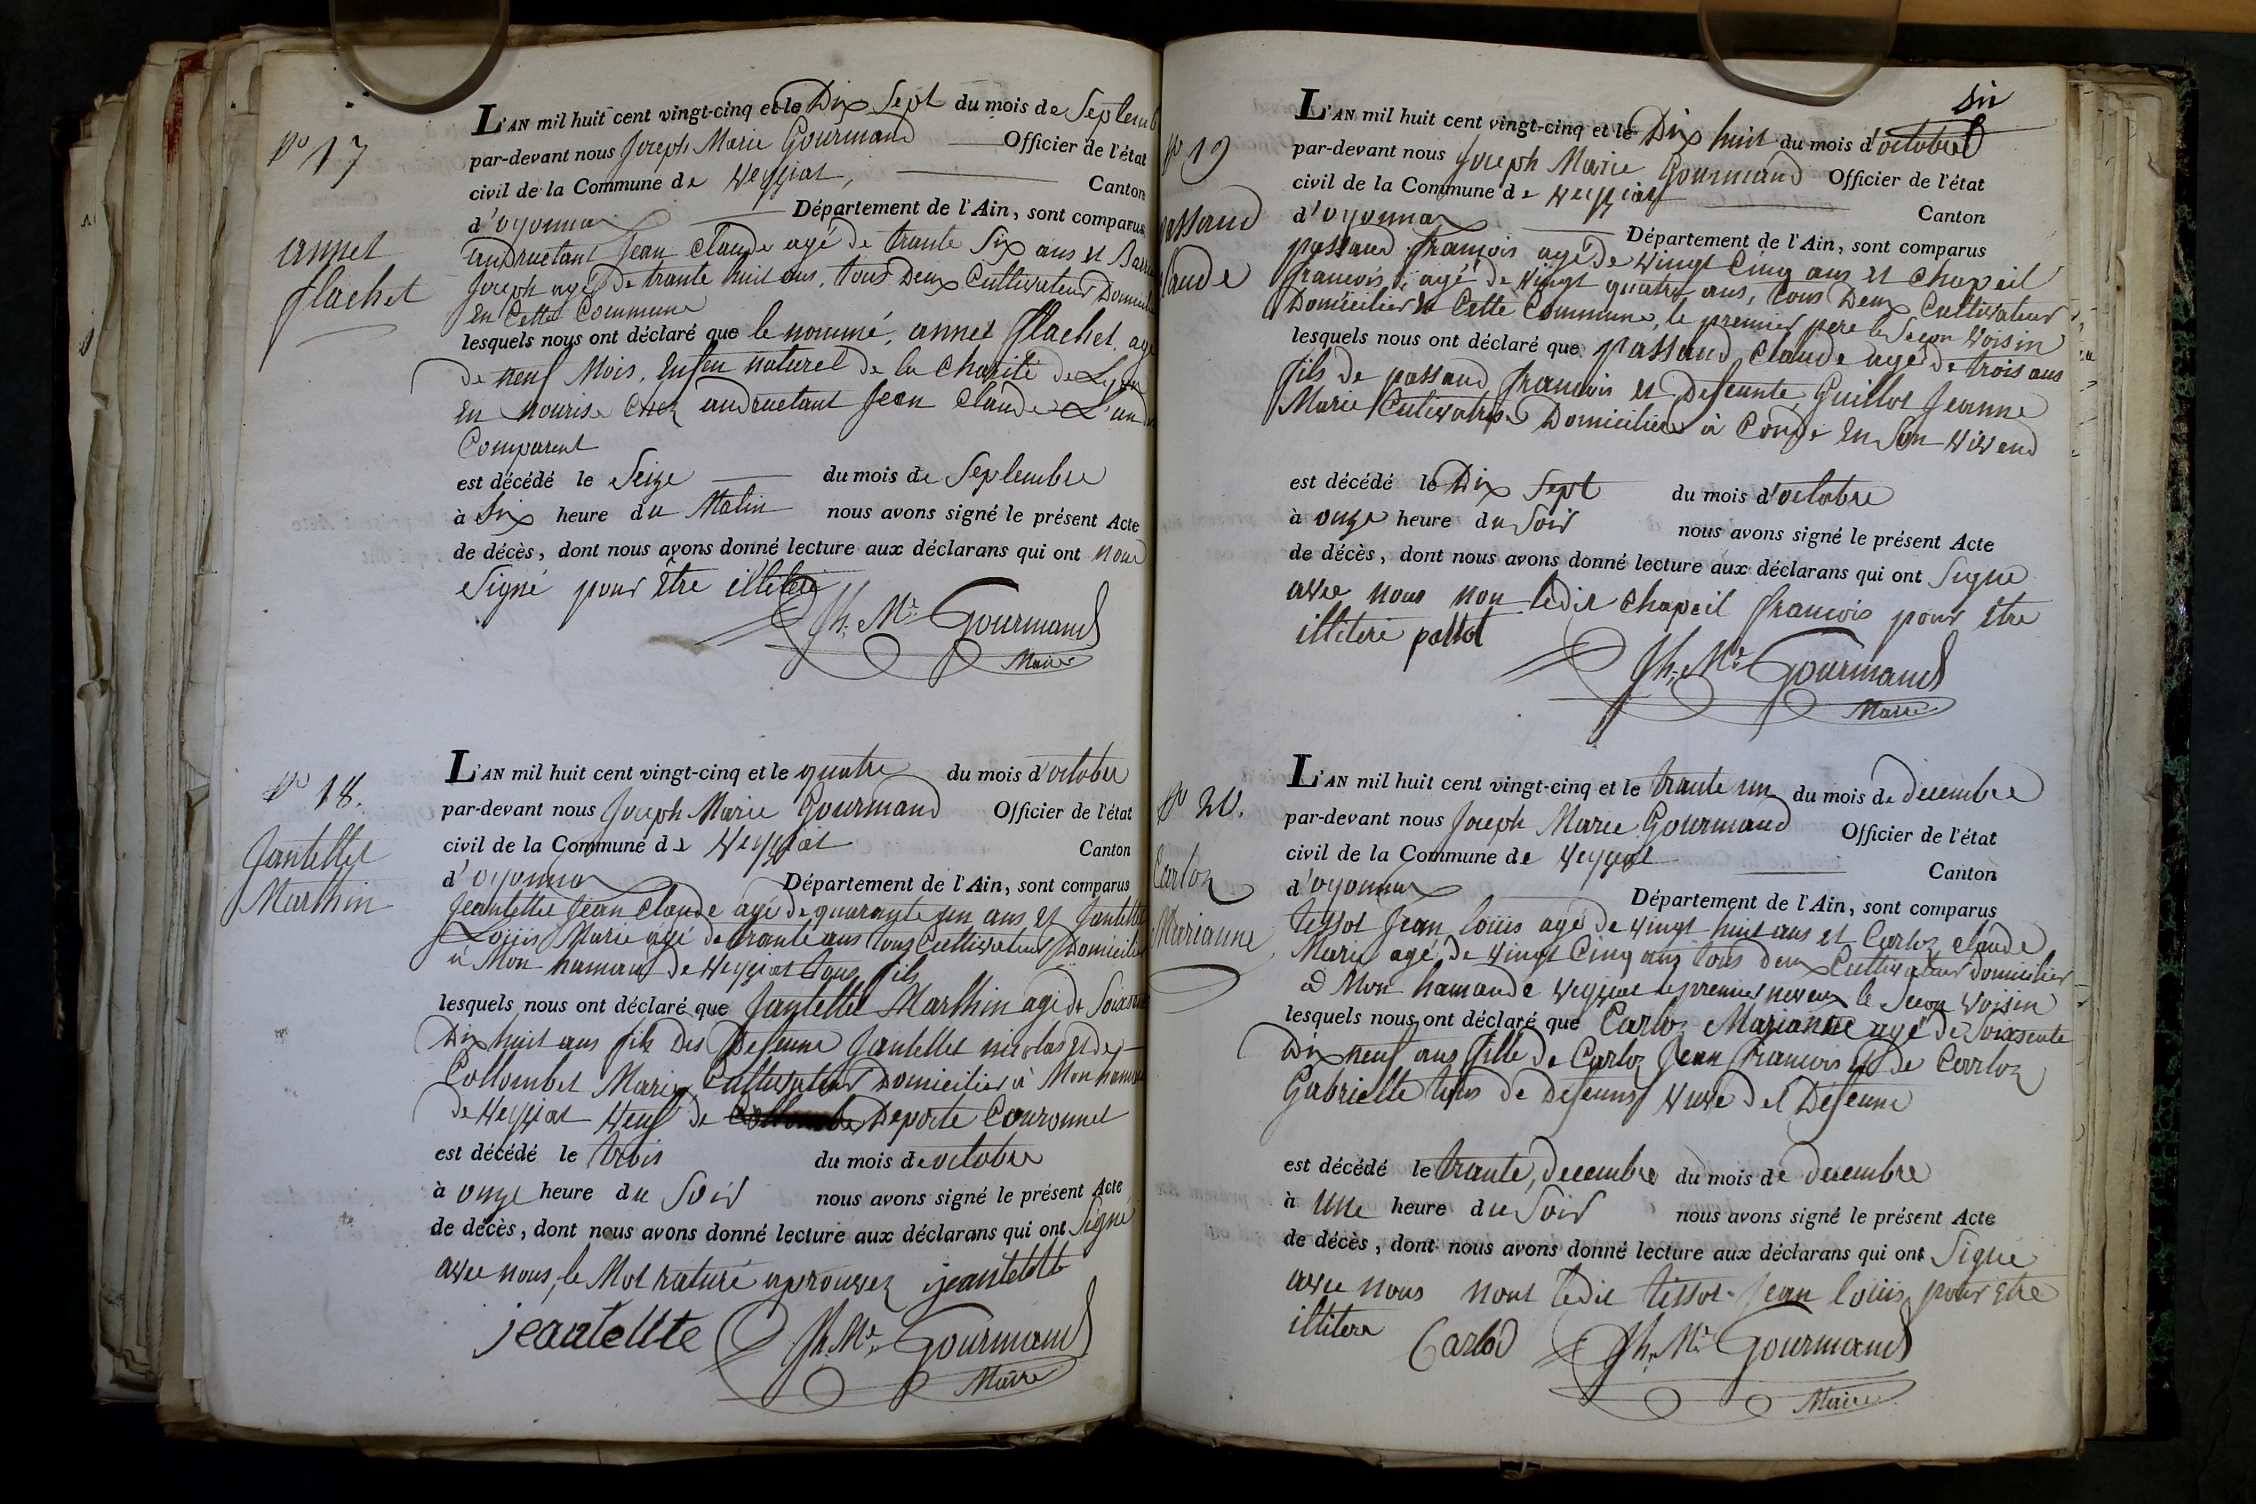 No 17
annet
flachet
L'AN mil huit cent vingt-cinq et le Dix Sept du mois de Septemb
par-devant nous Joseph Marie Gourmand Officier de l'état
civil de la Commune de Veyziat, Canton
d'oyonnax Département de l'Ain, sont comparus
andruetant Jean Claude agé de trante Six ans et
Joseph agé de trante huit ans, tous Deux Cultivateur
En Cette Commune
lesquels nous ont déclaré que le nommé, annet flachet, age
de neuf Mois, Enfen naturel de la Charité de Lyon
En nourise Chez andruetant Jean Claude L'un
Comparent
est décédé le Seize du mois de Septembre
à Six heure du Matin nous avons signé le présent Acte
de décès, dont nous avons donné lecture aux déclarans qui ont nous
Signé pour être illiteré
Jh. Me. Gourmand
Maire
No 18.
Jantellet
Marthin
L'AN mil huit cent vingt-cinq et le quatre du mois d'octobre
par-devant nous Joseph Marie Gourmand Officier de l'état
civil de la Commune de Veyziat Canton
d'oyonnax Département de l'Ain, sont comparus
Jeantellet Jean Claude agé de quarante un ans et Jantellet
Louis Marie agé de trante ans tous Cultivateur Domicilier
à Mon hamaud de Veyziat tous fils
lesquels nous ont déclaré que Jantellet Marthin agé de Soixante
Dix huit ans fils des Defeunt Jantellet nicolas et de
Collombet Marie, Cultivateur Domicilier à Mon hamau
de Veyziat Veuf de Deporte Couronnet
est décédé le trois du mois de octobre
à onze heure du Soir nous avons signé le présent Acte
de décès, dont nous avons donné lecture aux déclarans qui ont Signé
avec nous, le Mot raturé aprouvez jeantelette
jeantellte Jh. Me. Gourmand
Maire
six
No 19
passaud
Claude
L'AN mil huit cent vingt-cinq et le Dix huit du mois d'octobre
par-devant nous Joseph Marie Gourmand Officier de l'état
civil de la Commune de Veyziat Canton
d'oyonnax Département de l'Ain, sont comparus
passaud françois agé de vingt Cinq ans et Chapeil
francois, agé de vingt quatre ans, tous Deux Cultivateur
Domicilier de Cette Commune, le premier pere le Secon Voisin
lesquels nous ont déclaré que passaud Claude agé de trois ans
fils de passaud francois et Defeunte, Guillot Jeanne
Marie Cultivatrise Domicilier à Condé En Son vivend
est décédé le Dix Sept du mois d'octobre
à onze heure du Soir nous avons signé le présent Acte
de décès, dont nous avons donné lecture aux déclarans qui ont Signé
avec nous non ledit Chapeil francois pour être
illiteré passot
Jh. Me. Gourmand
Maire
No 20.
Carloz
Marianne
L'AN mil huit cent vingt-cinq et le trante un du mois de decembre
par-devant nous Joseph Marie Gourmand Officier de l'état
civil de la Commune de Veyziat Canton
d'oyonnax Département de l'Ain, sont comparus
tissot Jean louis agé de vingt huit ans et Carloz Claude
Marie agé de vingt Cinq ans tous deux Cultivateur domicilier
à Mon hamau de Veyziat le premier neveux le Secon Voisin
lesquels nous ont déclaré que Carloz Marianne agé de Soixsente
Dix neuf ans fille de Carloz Jean francois et de Carloz
Gabrielle tous de Defeunt Veuve del Defeunt
est décédé le trante, decembre du mois de decembre
à une heure du Soir nous avons signé le présent Acte
de décès, dont nous avons donné lecture aux déclarans qui ont Signé
avec nous nont ledit tissot Jean louis pour Etre
illitere Carlod Jh. Me. Gourmand
Maire